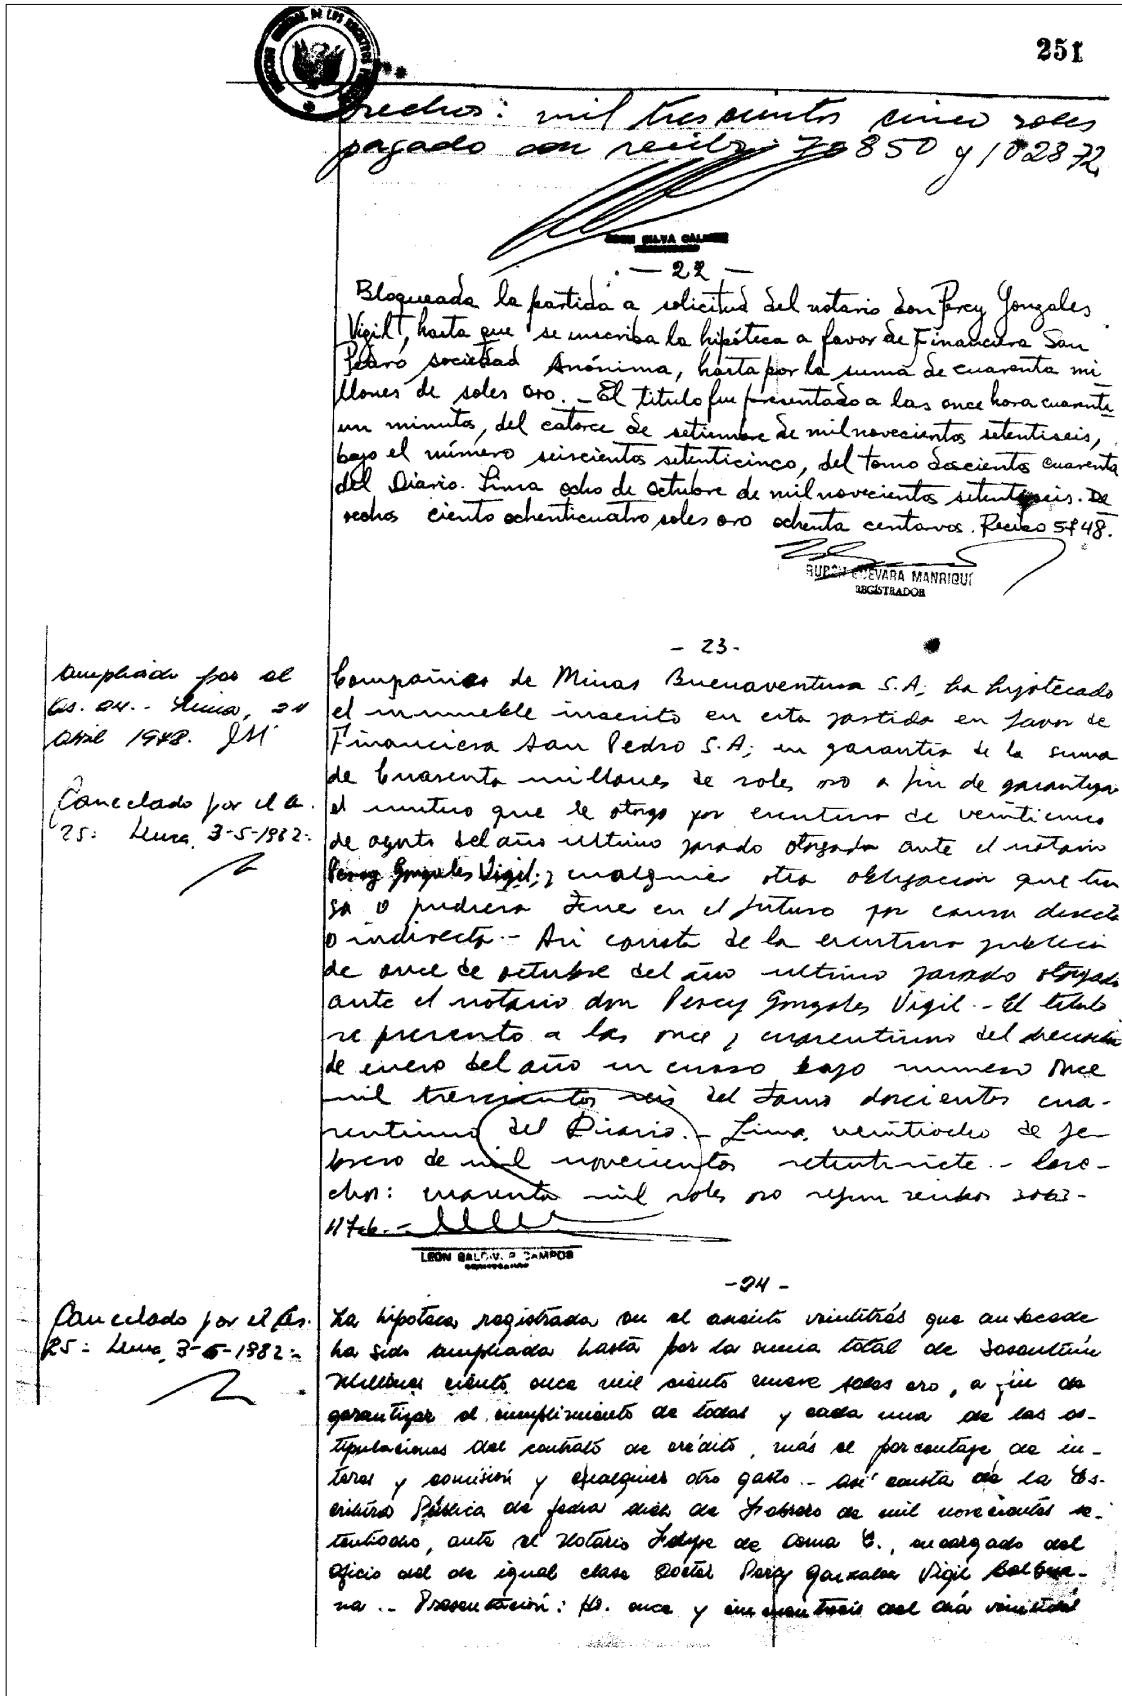 251
rechos: mil trescientos cinco soles
pagado con recibo 70850 y 102872
SILVA
— 22 —
Bloqueada la partida a solicitud del notario don Percy Gonzales
Vigil, hasta que se inscriba la hipóteca a favor de Financiera San
Pedro sociedad Anónima, hasta por la suma de cuarenta mi
llones de soles oro. - El titulo fue presentado a las once hora cuarenta
un minutos, del catorce de setiembre de mil novecientos setentiseis,
bajo el número seiscientos setenticinco, del tomo doscientos cuarenta
del Diario. Lima ocho de octubre de mil novecientos setentiseis. De
rechos ciento ochenticuatro soles oro ochenta centavos. Recibo 5748.
GUEVARA MANRIQUE
REGISTRADOR
- 23 -
Ampliada por el
As. 24.- Lima, 21
Abril 1978.
Cancelado por el a.
25: Lima, 3-5-1982:
Compañias de Minas Buenaventura S.A; ha hipotecado
el inmueble inscrito en esta partida en favor de
Financiera San Pedro S.A; en garantia de la suma
de Cuarenta millones de soles oro a fin de garantizar
el mutuo que se otorgo por escritura de veinticinco
de agosto del año ultimo pasado otorgada ante el notario
Percy Gonzales Vigil; y cualquier otra obligacion que ten
ga o pudiera tener en el futuro por causa directa
o indirecta.- Asi consta de la escritura publica
de once de octubre del año ultimo pasado otorgada
ante el notario don Percy Gonzales Vigil.- El titulo
se presento a las once y cuarentiuno del
de enero del año en curso bajo numero once
mil trescientos seis del Tomo doscientos cua-
rentiuno del Diario.- Lima, veintiocho de fe-
brero de mil novecientos setentisiete.- Dere-
chos: cuarenta mil soles oro segun recibos 3063-
LEON CAMPOS
- 24 -
Cancelado por el As.
25: Lima, 3-5-1982:
La hipoteca registrada en el asiento veintitrés que antecede
ha sido ampliada hasta por la suma total de Sesentiún
Millones ciento once mil ciento nueve soles oro, a fin de
garantizar el cumplimiento de todas y cada una de las es-
tipulaciones del contrato de crédito, más el porcentaje de in-
teres y comisión y cualquier otro gasto.- Así consta de la Es-
critura Pública de fecha diez de Febrero de mil novecientos se-
tentiocho, ante el Notario Felipe de Osma E., encargado del
Oficio del de igual clase Doctor Percy Gonzales Vigil Balbue-
na.- Presentación: Hs. once y cincuentiseis del día veintidos